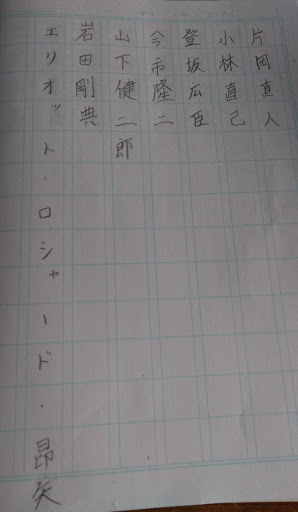 片岡直人
小林直己
登坂広臣
今市隆二
山下健二郎
岩田剛典
エリオット・ロシャード・昂矢